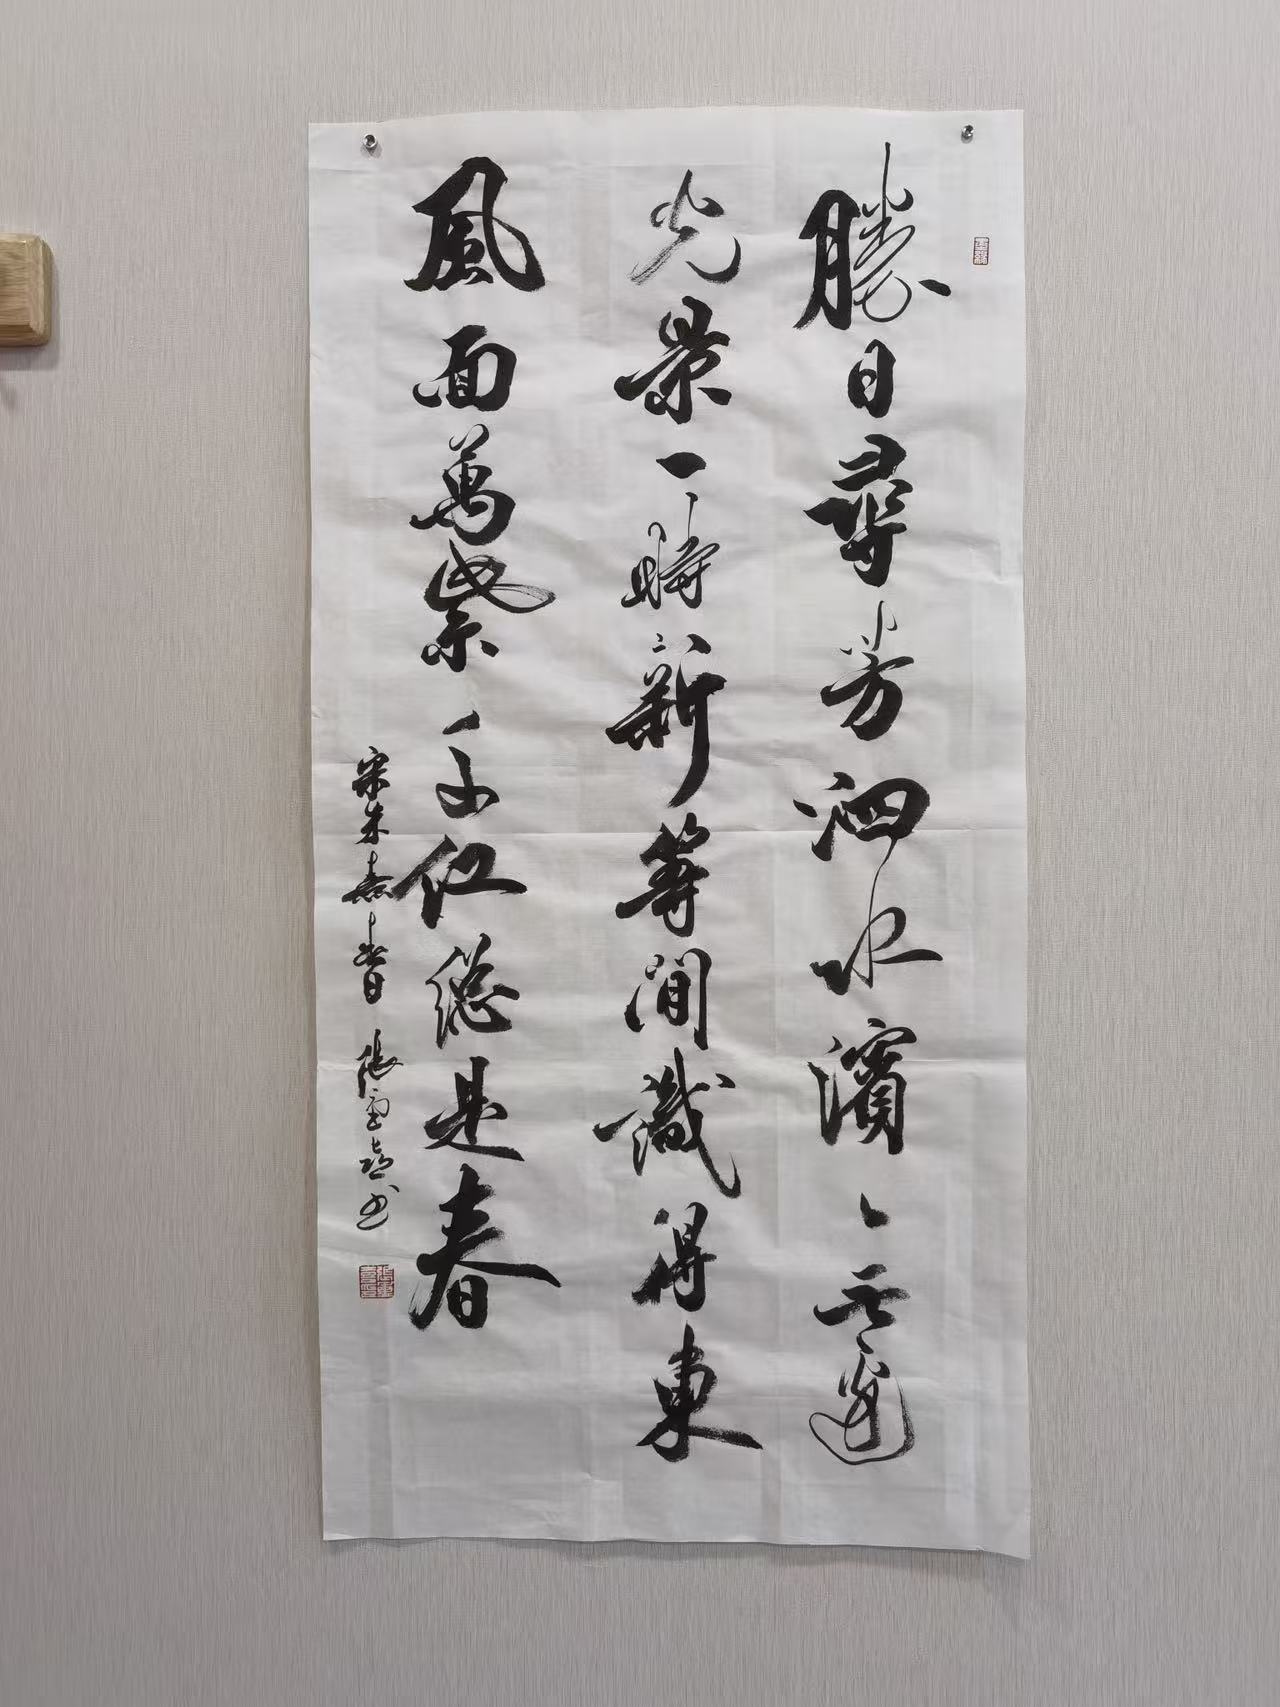 勝日尋芳泗水濱無邊
光景一時新等閒識得東
風面萬紫千红總是春
宋朱熹春日 張雲志书